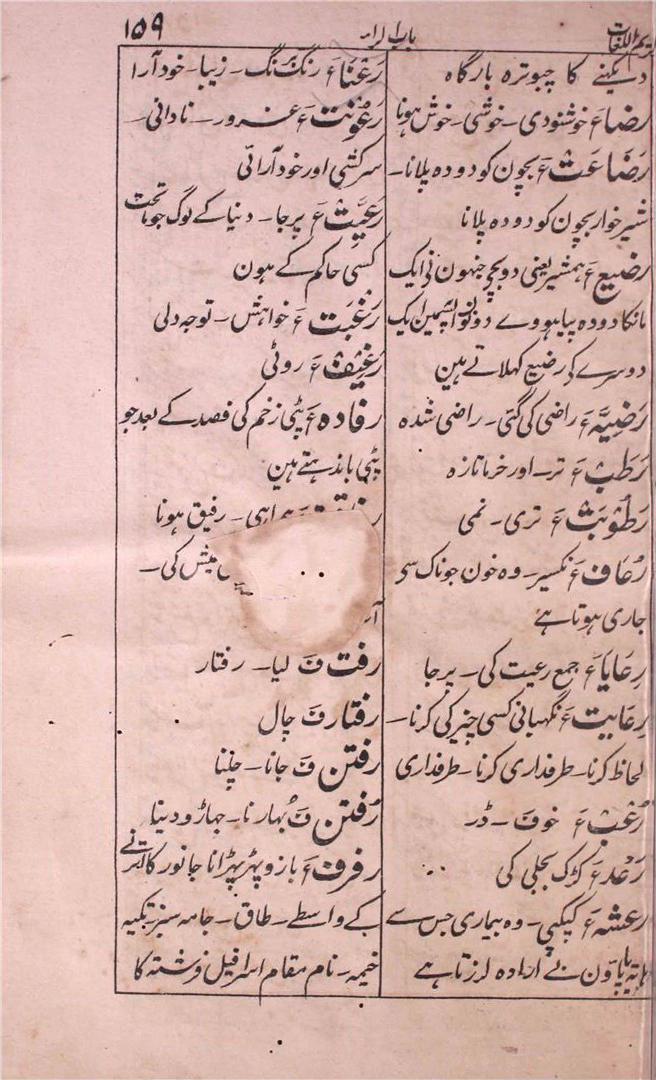 کریم اللغات باب الراء ۱۵۹
دیکہنے کا چبوترہ بارگاہ
رضاء ع خوشنودی۔ خوشی۔ خوش ہونا
رَضَاعَت ع بچون کو دودہ پلانا۔
شیر خوار بچون کو دودہ پلانا
رضیع ع ہمشیر یعنی دو بچے جنہون نی ایک
مانکا دودہ پیا ہووے دونو آپسمین ایک
دوسرے کی رضیع کہلاتے ہین
رَضِیَّہ ع راضی کی گئی۔ راضی شدہ
رَطَب ع تر۔ اور خرما تازہ
رَطُوبَت ع تری۔ نمی
رُعَاف ع نکسیر۔ وہ خون جو ناک سی
جاری ہوتا ہے
رِعَایَا ع جمع رعیت کی۔ پرجا
رِعَایت ع نگہبانی کسی چیز کی کرنا۔
لحاظ کرنا۔ طرفداری کرنا۔ طرفداری
رُعْب ع خوف۔ ڈر
رَعْد ع کڑک بجلی کی
رعشہ ع کپکپی۔ وہ بیماری جس سے
ہاتہ پاؤن بے ارادہ لرزتا ہے
رَعْنَا ع رنگ برنگ۔ زیبا۔ خود آرا
رَعُونَت ع غرور۔ نادانی۔
سرکشی اور خود آرائی
رَعِیَّت ع پرجا۔ دنیا کے لوگ جو ماتحت
کسی حاکم کے ہون
رَغْبَت ع خواہش۔ توجہ دلی
رَغِیْف ع روٹی
رفادہ ع پٹی زخم کی فصد کے بعد جو
پٹی باندہتے ہین
رفیق ہونا
کی۔
رفت ف گیا۔ رفتار
رفتار ف چال
رفتن ف جانا۔ چلنا
رُفتن ف بُہارنا۔ جہاڑو دینا
رفرف ع بازو پہڑپہڑانا جانور کا اترنے
کے واسطے۔ طاق۔ جامہ سبز۔ تکیہ
خیمہ۔ نام مقام اسرافیل فرشتہ کا